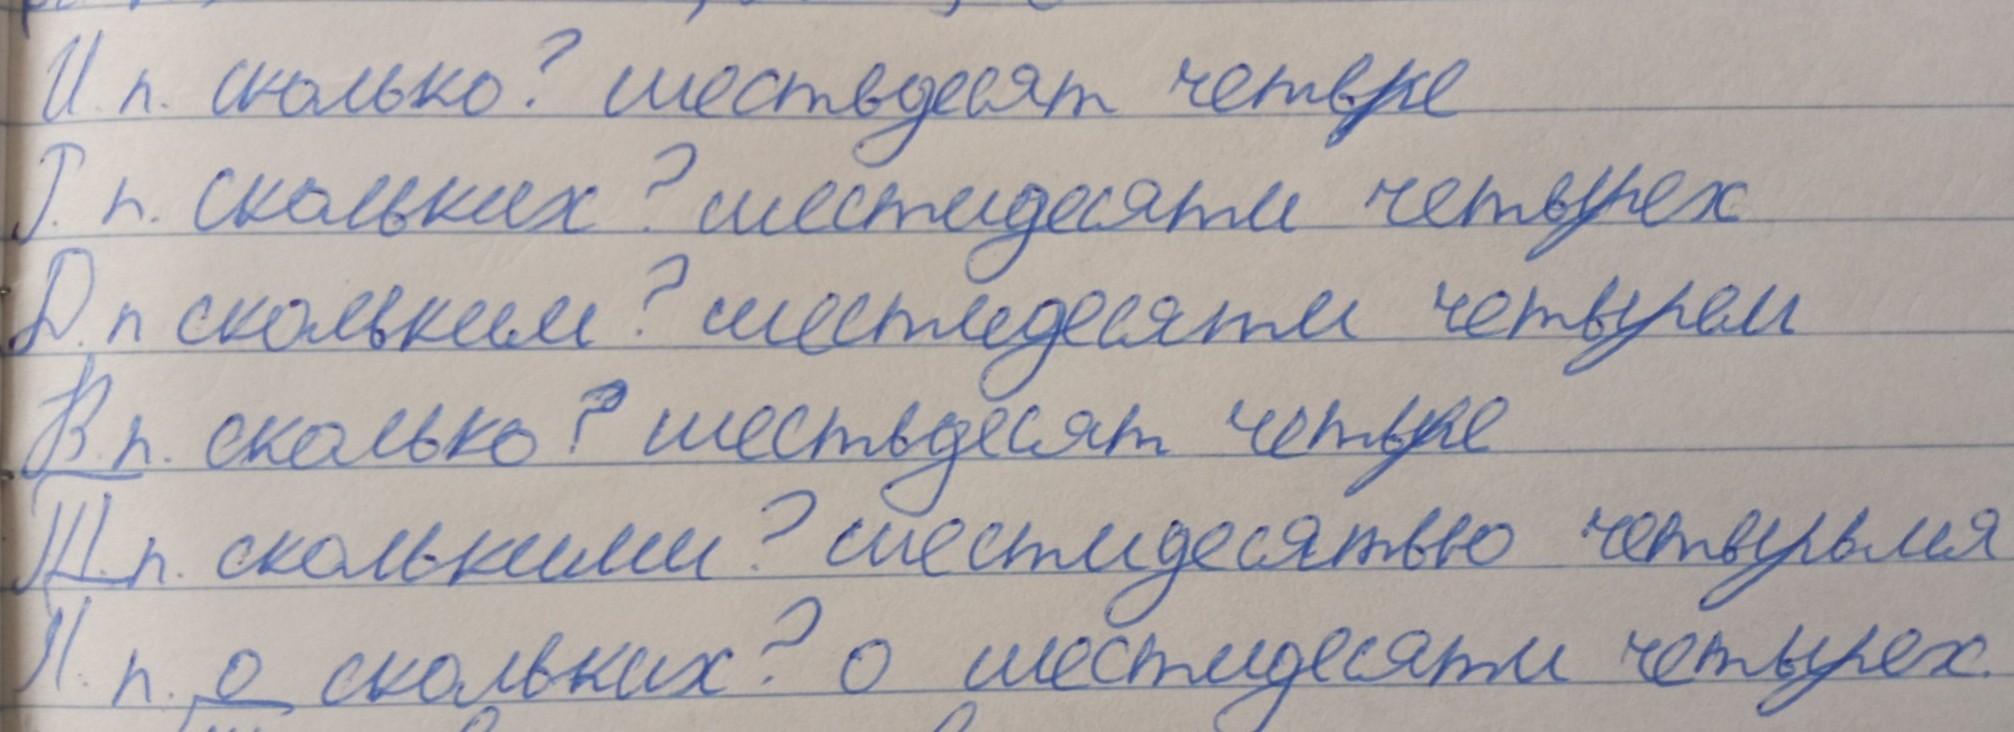 И. п. сколько? шестьдесят четыре
Р. п. скольких? шестидесяти четырех
Д. п скольким? шестидесяти четырем
В. п. сколько? шестьдесят четыре
Т. п. сколькими? шестидесятью четырьмя
П. п. о скольких? о шестидесяти четырех.